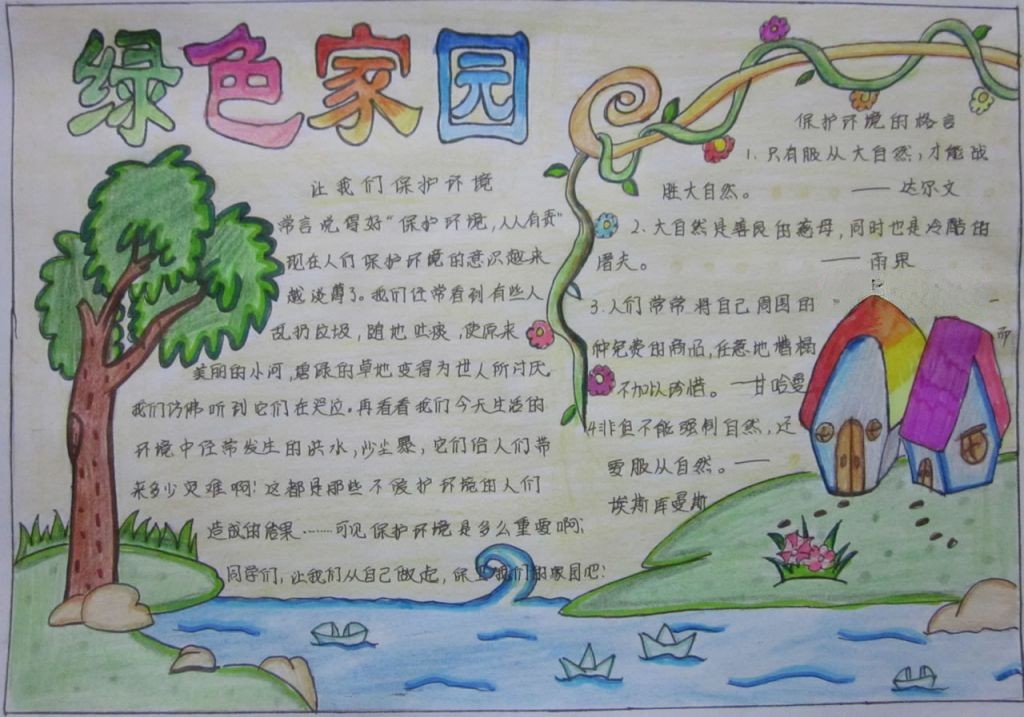 绿色家园
让我们保护环境
常言说得好“保护环境,人人有责”
现在人们保护环境的意识越来
越淡薄了。我们经常看到有些人
乱扔垃圾,随地吐痰,使原来
美丽的小河,碧绿的草地变得为世人所讨厌。
我们仿佛听到它们在哭泣。再看看我们今天生活的
环境中经常发生的洪水,沙尘暴,它们给人们带
来多少灾难啊!这都是那些不爱护环境的人们
造成的后果……可见保护环境是多么重要啊!
同学们,让我们从自己做起,保卫我们的家园吧!
保护环境的格言
1.只有服从大自然,才能战
胜大自然。 —— 达尔文
2.大自然是善良的慈母,同时也是冷酷的
屠夫。 —— 雨果
3.人们常常将自己周围的
种免费的商品,任意地糟榻
而
不加以珍惜。 —甘哈曼
4非但不能强制自然,还
要服从自然。——
埃斯库曼斯